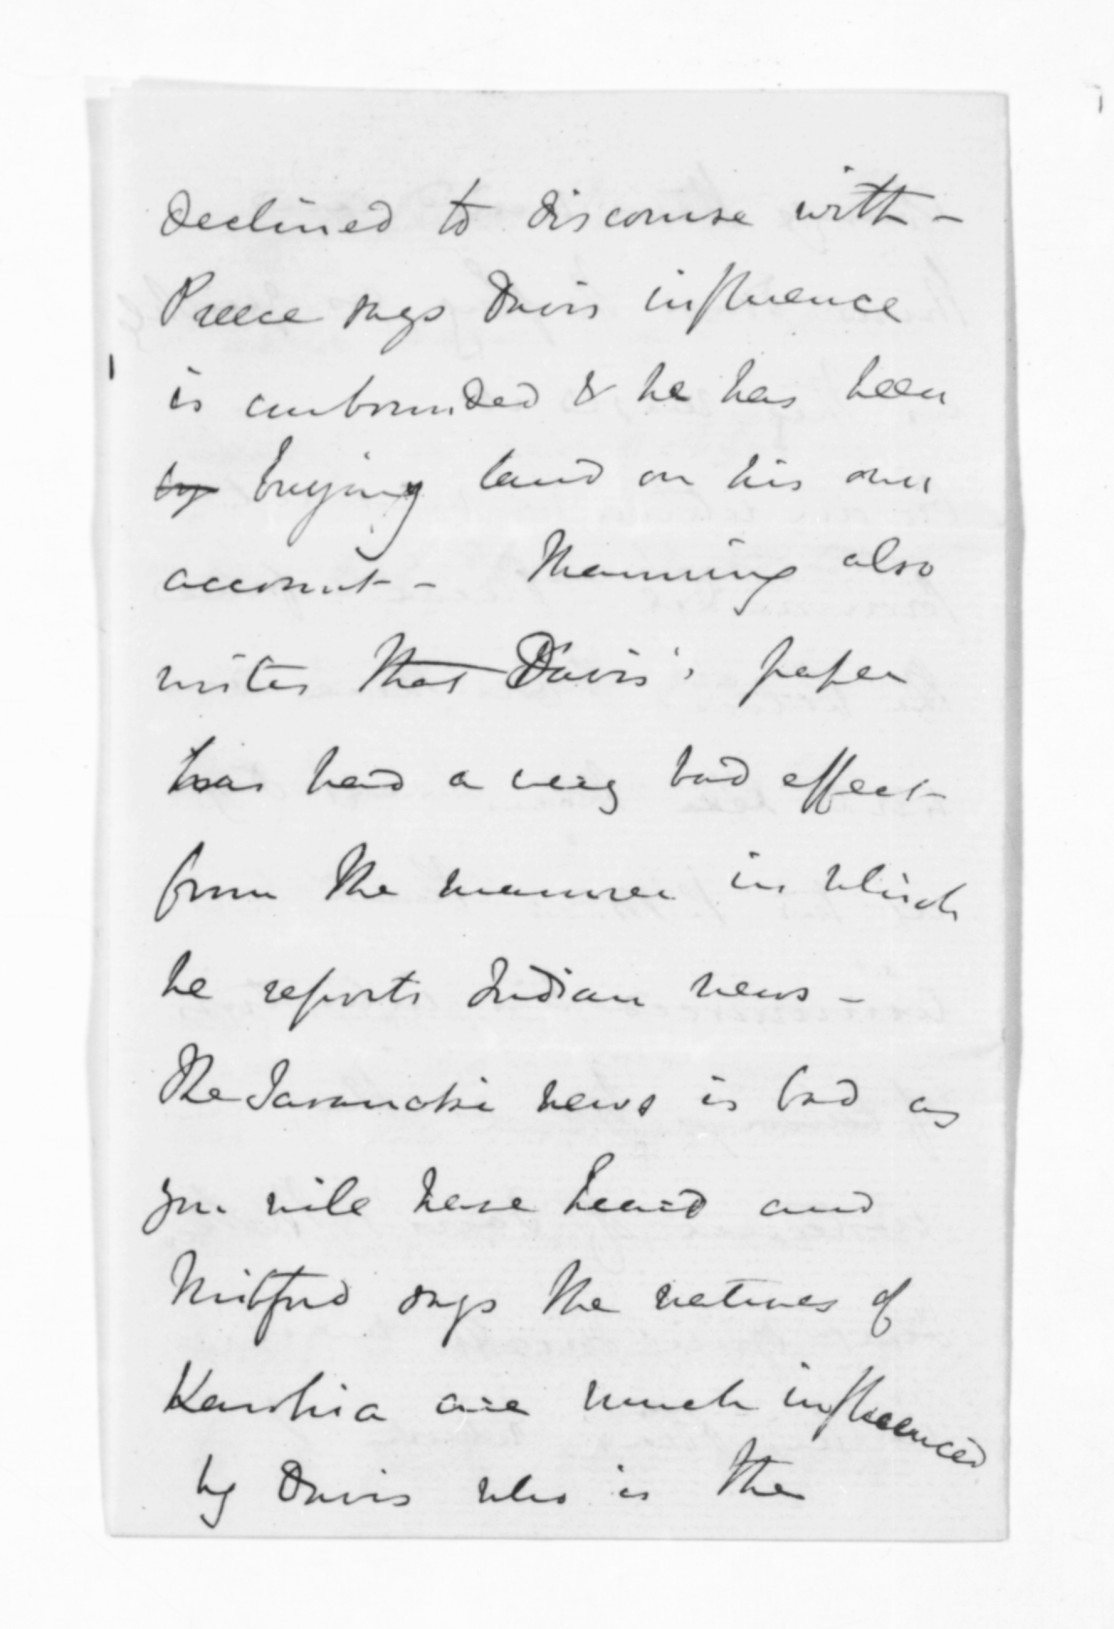 declined to discourse with -
Preece says Davis influence
is unbounded & he has been
by buying land on his own
account - Manning also
writes that Davis's paper
has had a very bad effect
from the manner in which
he reports Indian news -
The Taranaki news is bad as
you will have heard and
says the natives of
Kawhia are much influenced
by Davis who is the